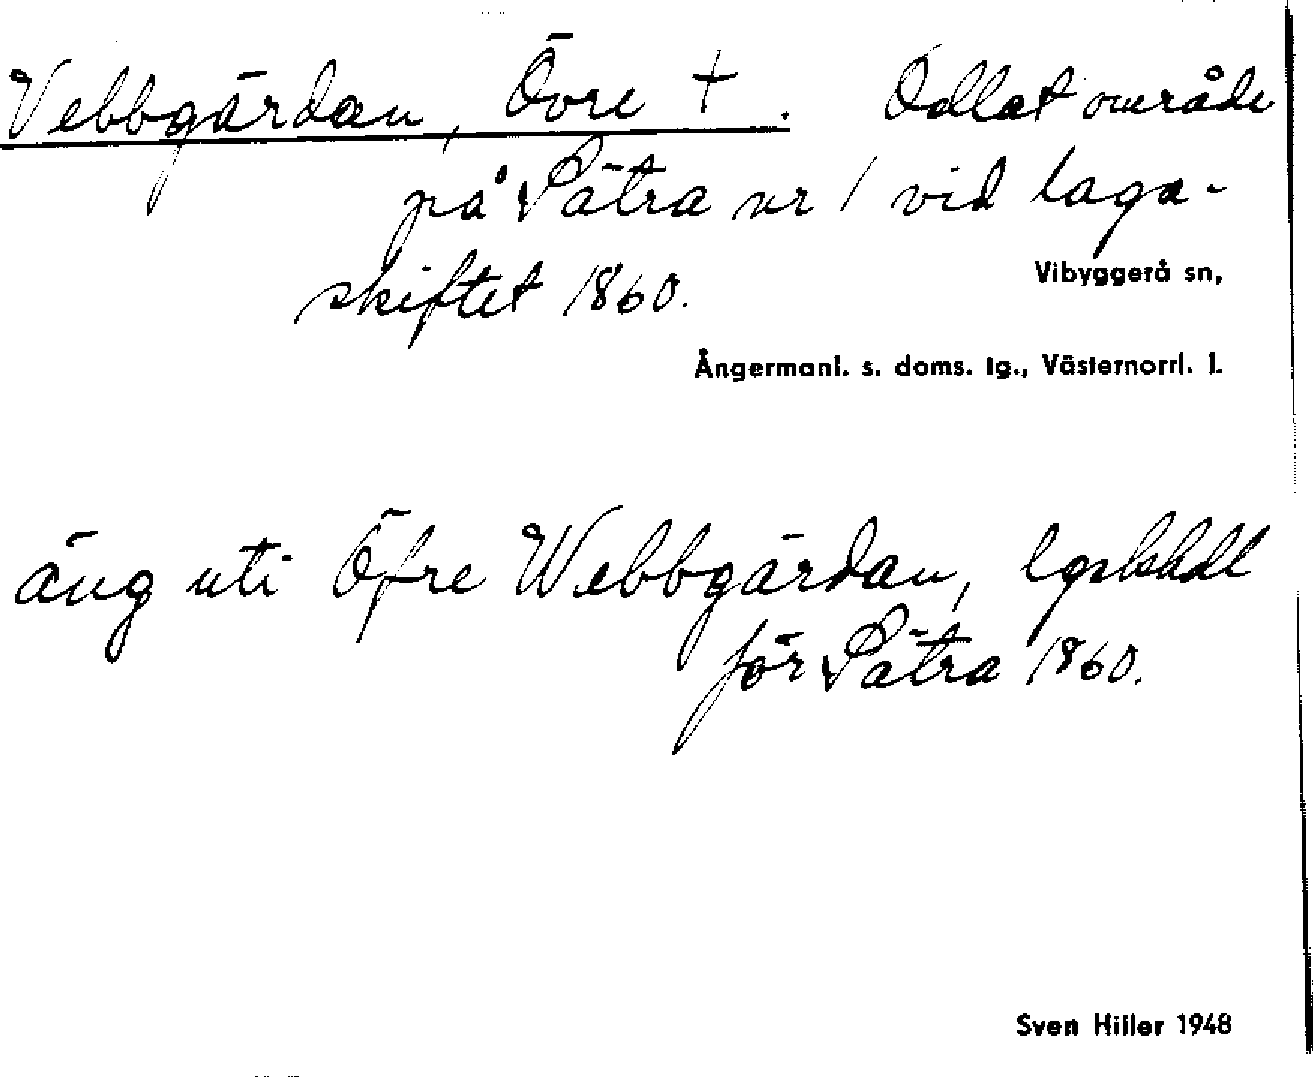 Vebbgärdan, Övre †. Odlat område
på Sätra nr 1 vid laga-
skiftet 1860.
Vibyggerå sn,
Ångermanl. s. doms. tg., Västernorrl. l.
äng uti Öfre Webbgärdan, lgskhdl
för Sätra 1860.
Sven Hiller 1948